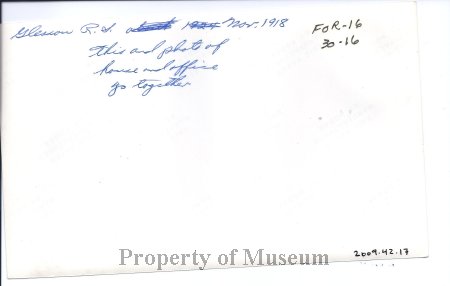 Gleason R.S. about 1924 Nov. 1918
this and photo of
house and office
go together
FOR-16
30-16
2009.42.17
Property of Museum